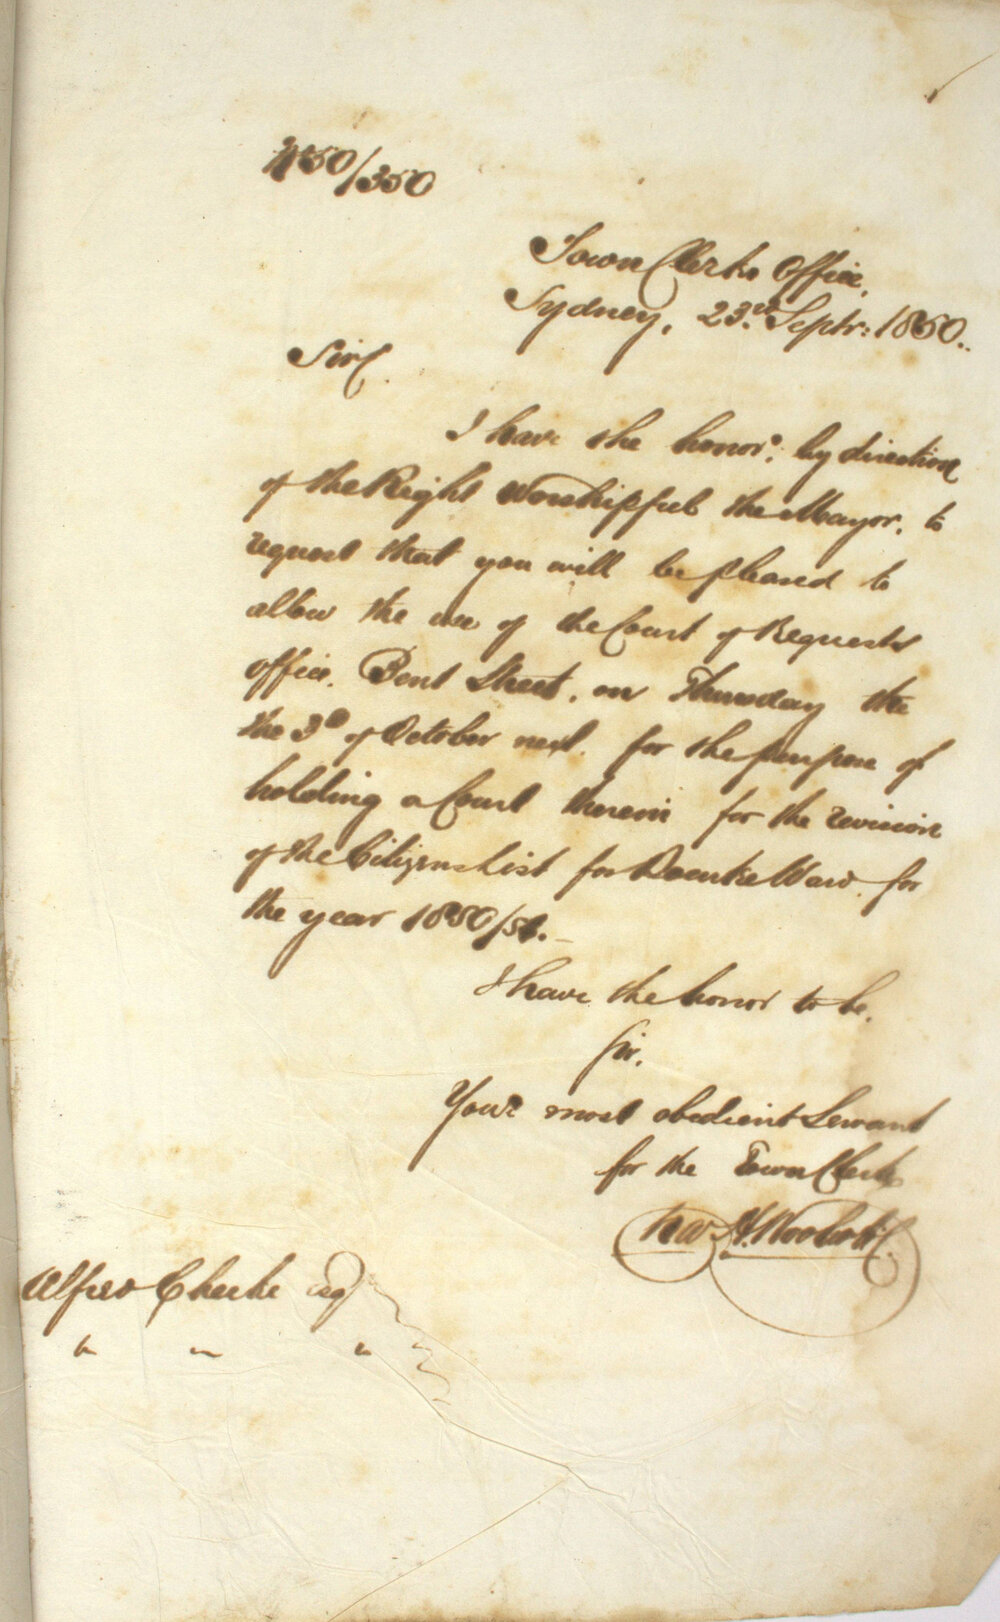 450/350
Town Clerks Office,
Sydney, 23rd Septr: 1850.
Sir,
I have the honor, by direction
of the Right Worshipful the Mayor, to
request that you will be pleased to
allow the use of the Court of Requests
Office, Bent Street, on Thursday the
the 3d of October next, for the purpose of
holding a Court therein for the revision
of the Citizens List for Bourke Ward, for
the year 1850/51.
I have the honor to be,
Sir,
Your most obedient Servant
for the Town Clerk
H. Woolcott
Alfred Cheeke Esq
" " "